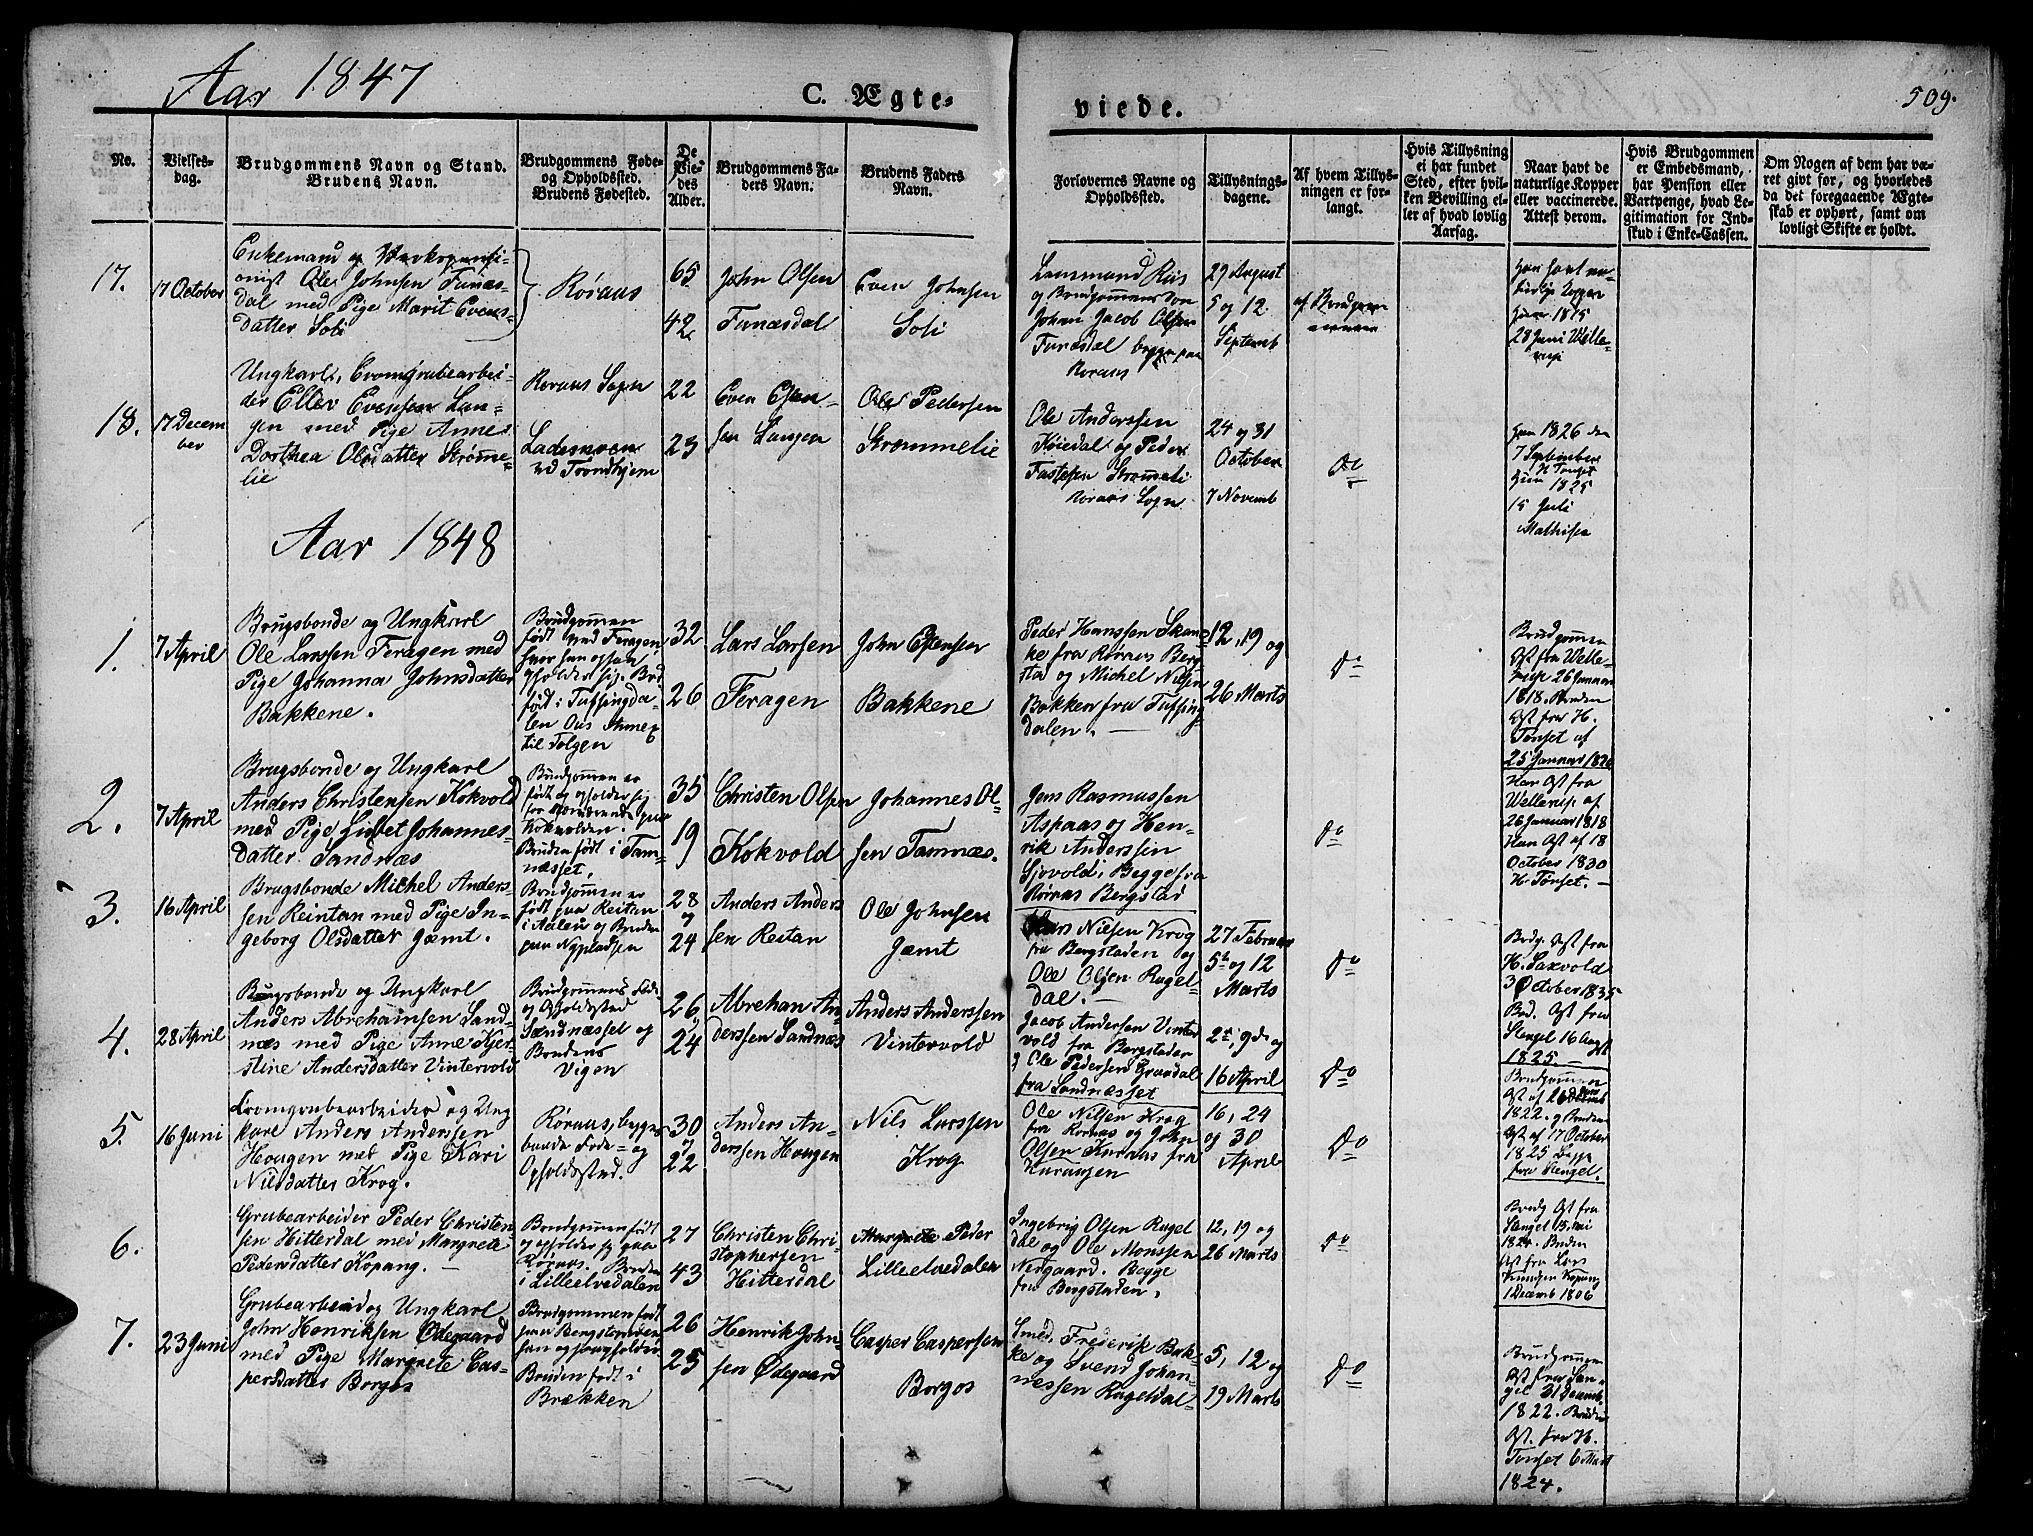 Aar 1847
C. Ægte-
viede.
509.
No.
Vielses-
dag.
Brudgommens Navn og Stand.
Brudens Navn.
Brudgommens Føde-
og Opholdssted.
Brudens Fødested.
De
Vie-
des
Alder.
Brudgommens Fa-
ders Navn.
Brudens Faders
Navn.
Forlovernes Navne og
Opholdssted.
Tillysnings-
dagene.
Af hvem Tillys-
ningen er for-
langt.
Hvis Tillysning
ei har fundet
Sted, efter hvil-
ken Bevilling el-
ler af hvad lovlig
Aarsag.
Naar havt de
naturlige Kopper
eller vaccinerede.
Attest derom.
Hvis Brudgommen
er Embedsmand,
har Pension eller
Vartpenge, hvad Le-
gitimation for Ind-
skud i Enke-Cassen.
Om Nogen af dem har væ-
ret givt før, og hvorledes
da det foregaaende Ægte-
skab er ophørt, samt om
lovligt Skifte er holdt.
17.
17 October
Enkemand og Værkspensi-
onist Ole Johnsen Funæs-
dal med Pige Marit Evens-
datter Soli
Røraas
65
42
John Olsen
Funæsdal
Even Johnsen
Soli
Lensmand Riis
og Brudgommens Søn
Johan Jacob Olsen
Funæsdal begge paa
Røraas
29 August
5 og 12
Septemb
af Brudgom-
men
Han havt na-
turlige Kopper
Hun 1815
28 Juni Welle-
rup
18.
17 Decem
ber
Ungkarl, Cromgrubearbei-
der Ellev Evensen Lan-
gen med Pige Anne
Dorthea Olsdatter Strømme-
lie
Røraas Sogn
Ladesmoen
ved Trondhjem
22
23
Even Esen-
sen Langen
Ole Pedersen
Strømmelie
Ole Anderssen
Høiedal og Peder
Fastesen Strømeli
Røraas Sogn
24 og 31
October
7 Novemb
Do
Han 1826 den
7 September
H Tønset
Hun 1825
15 Juli
Mathisen
Aar 1848
1.
7 April
Brugsbonde og Ungkarl
Ole Larssen Feragen med
Pige Johanna Johnsdatter
Bakkene.
Brudgommen
født ved Feragen
hvor han ogsaa
opholder sig. Brd
født i Tuffingda-
len Oas Annex
til Tolgen
32
26
Lars Larsen
Feragen
John Estensen
Bakkene
Peder Hanssen Skan-
ke fra Røraas Berg-
stad og Michel Nilsen
Bakken fra Tuffing-
dalen.
12, 19 og
26 Marts
Do
Brudgommen
Att fra Welle-
rup 26 Januar
1818. Bruden
Att fra H.
Tønset af
25 Januar 1826
2.
7 April
Brugsbonde og Ungkarl
Anders Christensen Kokvold
med Pige Lisbet Johannes-
datter Sandnæs
Brudgommen er
født og opholder sig
for nærværende paa
Kokvolden.
Bruden født i Tam-
næsset.
35
19
Christen Olsen
Kokvold
Johannes Ol-
sen Tamnæs.
Jens Rasmussen
Aspaas og Hen-
rik Anderssen
Sjovold. Begge fra
Røraas Bergstad
Do
Har Att fra
Wellerup af
26 Januar 1818
Hun Att af 18
October 1830
H. Tønset.
3.
16 April
Brugsbonde Michel Anders-
sen Reintan med Pige In-
geborg Olsdatter Jæmt.
Brudgommen er
født paa Reitan
i Aalen og Bruden
paa Nypladsen
28
og
24
Anders Anders
sen Reitan
Ole Johnsen
Jæmt
Lars Nielsen Krog
fra Bergstaden og
Ole Olsen Rugel-
dal.
27 Februar
5te og 12
Marts
Do
Brdg. Att fra
H. Saxvold
3 October 1835
Brd. Att fra
Stengel 16 Augst
1825
4.
28 April
Brugsbonde og Ungkarl
Anders Abrehamsen Sand-
næs med Pige Anne Kjer-
stine Andersdatter Vintervold
Brudgommens Føde
og Opholdssted
Sandnæsset og
Brudens
Vigen
26
24
Abrehan An-
derssen Sandnæs
Anders Anderssen
Vintervold
Jacob Andersen Vinter
vold fra Bergstaden
og Ole Pedersen Graadal
fra Sandnæsset
2den, 9de og
16 April
Do
5.
16 Juni
Cromgrubearbeider og Ung
karl Anders Anderssen
Hougen med Pige Kari
Nilsdatter Krog.
Røraas, begge
baade Føde- og
Opholdssted.
30
22
Anders An-
derssen Hougen
Nils Larssen
Krog
Ole Nilsen Krog
fra Røraas og John
Olsen Kuraas fra
Kuraasen
16, 24
og 30
April
Do
Brudgommen
Att af 26 Decemb
1822. og Bruden
Att af 17 October
1825 Begge
fra Stengel.
6.
Grubearbeider Peder Christen-
sen Hitterdal med Margrete
Pedersdatter Kopang.
Brudgommen født
og opholder sig paa
Røraas. Bruden
i Lilleelvedalen
27
43
Christen Chri-
stophersen
Hitterdal
Margrete Peder
Lilleelvedalen
Ingebrig Olsen Rugel
dal og Ole Monssen
Nergaard. Begge
fra Bergstaden.
12, 19 og
26 Marts
Do
Brudg Att fra
Stengel 15 Mai
1824. Bruden
Att fra Lars
Knudsen Kopang
1 Decemb 1806
7.
23 Juni
Grubearbeid og Ungkarl
John Henriksen Ødegaard
med Pige Margrete Cas-
persdatter Borgos
Brudgommen født
paa Bergstaden
han ogsaa opholder
Bruden født i
Brækken
26
25
Henrik John-
sen Ødegaard
Casper Caspersen
Borgos
Smed, Frederik Bak-
ke og Svend Johan-
nessen Rugeldal
5, 12 og
19 Marts
Do
Brudgommen
Att fra Sten-
gel 31 Decemb.
1822. Bruden
Att. fra H.
Tønset 6 Mart
1824.